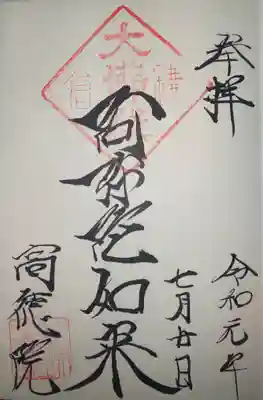 奉拝
令和元年
七月廿日
阿弥陀如来
高徳院